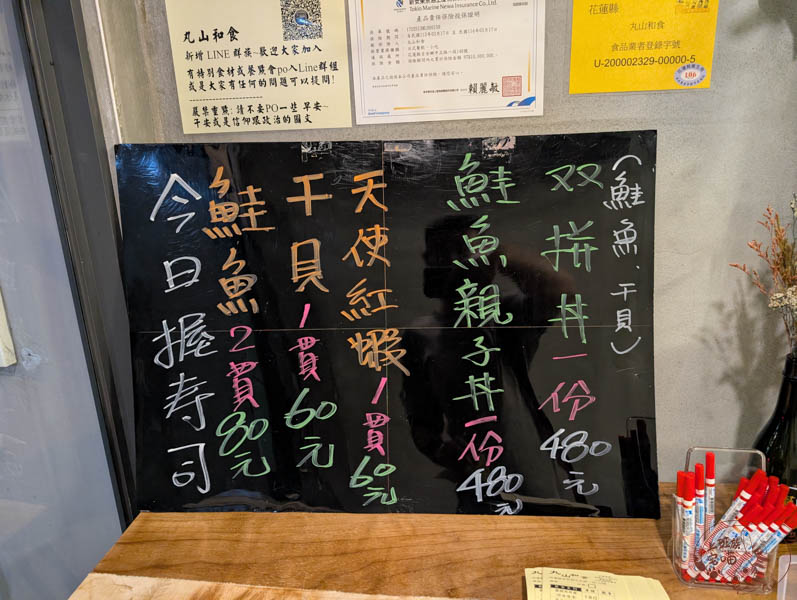 丸山和食
新增 LINE 群族-歡迎大家加入
有特別食材或餐點會po入Line群組
或是大家有任何的問題可以提問!
嚴禁重點:請不要PO一些 早安~
午安或是信仰跟政治的圖文
Tokio Marine Newa Insurance Co., Ltd.
產品責任保險投保證明
賴麗敏
花蓮縣
丸山和食
食品業者登錄字號
U-200002329-00000-5
(鮭魚、干貝)
双拼丼一份480元
鮭魚親子丼一份480元
天使紅蝦1貫60元
干貝1貫60元
鮭魚2貫80元
今日握寿司
丸山和食